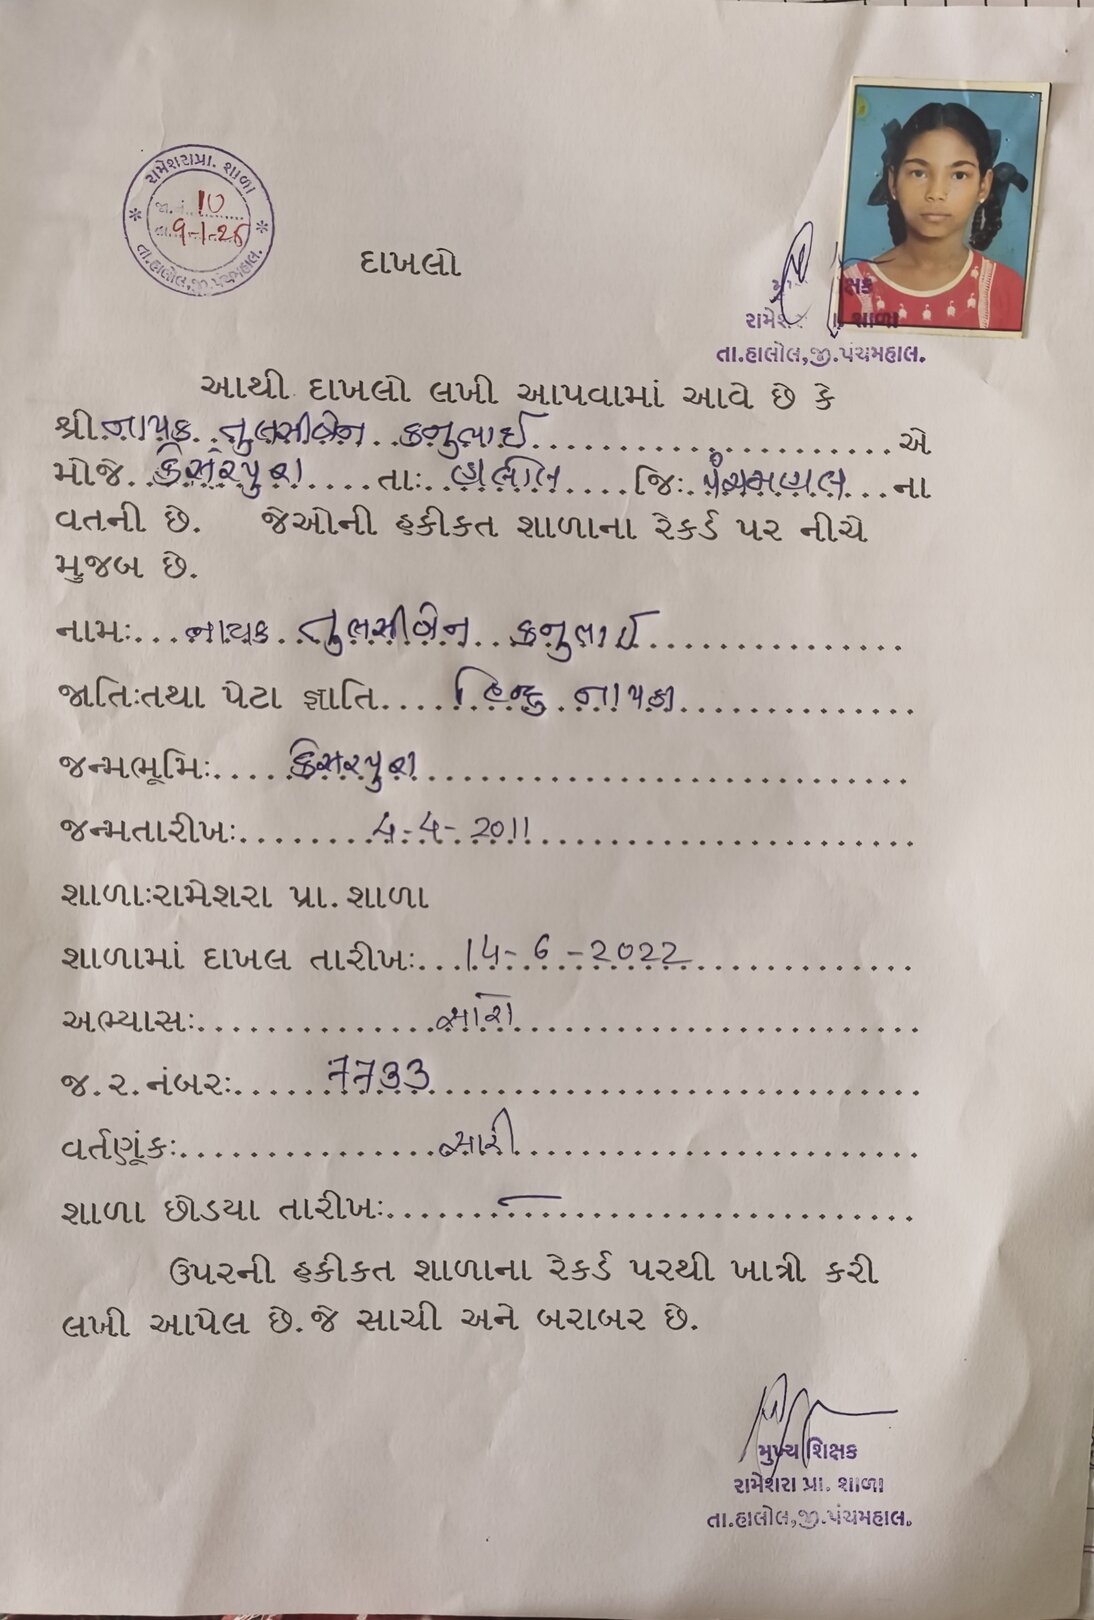 રામેશરાપ્રા. શાળા
જા.નં. 10
તા. 9-1-26
તા.હાલોલ,જી.પંચમહાલ.
દાખલો
રામેશરા પ્રા. શાળા
તા.હાલોલ,જી.પંચમહાલ.
આથી દાખલો લખી આપવામાં આવે છે કે
શ્રી નાયક તુલસીબેન કનુભાઈ એ
મોજે કેસરપુરા તાઃ હાલોલ જિઃ પંચમહાલ ના
વતની છે. જેઓની હકીકત શાળાના રેકર્ડ પર નીચે
મુજબ છે.
નામઃ... નાયક તુલસીબેન કનુભાઈ
જાતિઃતથા પેટા જ્ઞાતિ.... હિન્દુ નાયકા
જન્મભૂમિઃ.... કેસરપુરા
જન્મતારીખઃ....... 4-4-2011
શાળાઃરામેશરા પ્રા. શાળા
શાળામાં દાખલ તારીખઃ... 14-6-2022
અભ્યાસઃ.............. સારો
જ.ર.નંબરઃ..... 7733
વર્તણૂંકઃ............... સારી
શાળા છોડયા તારીખઃ....... —
ઉપરની હકીકત શાળાના રેકર્ડ પરથી ખાત્રી કરી
લખી આપેલ છે.જે સાચી અને બરાબર છે.
મુખ્ય શિક્ષક
રામેશરા પ્રા. શાળા
તા.હાલોલ,જી.પંચમહાલ.